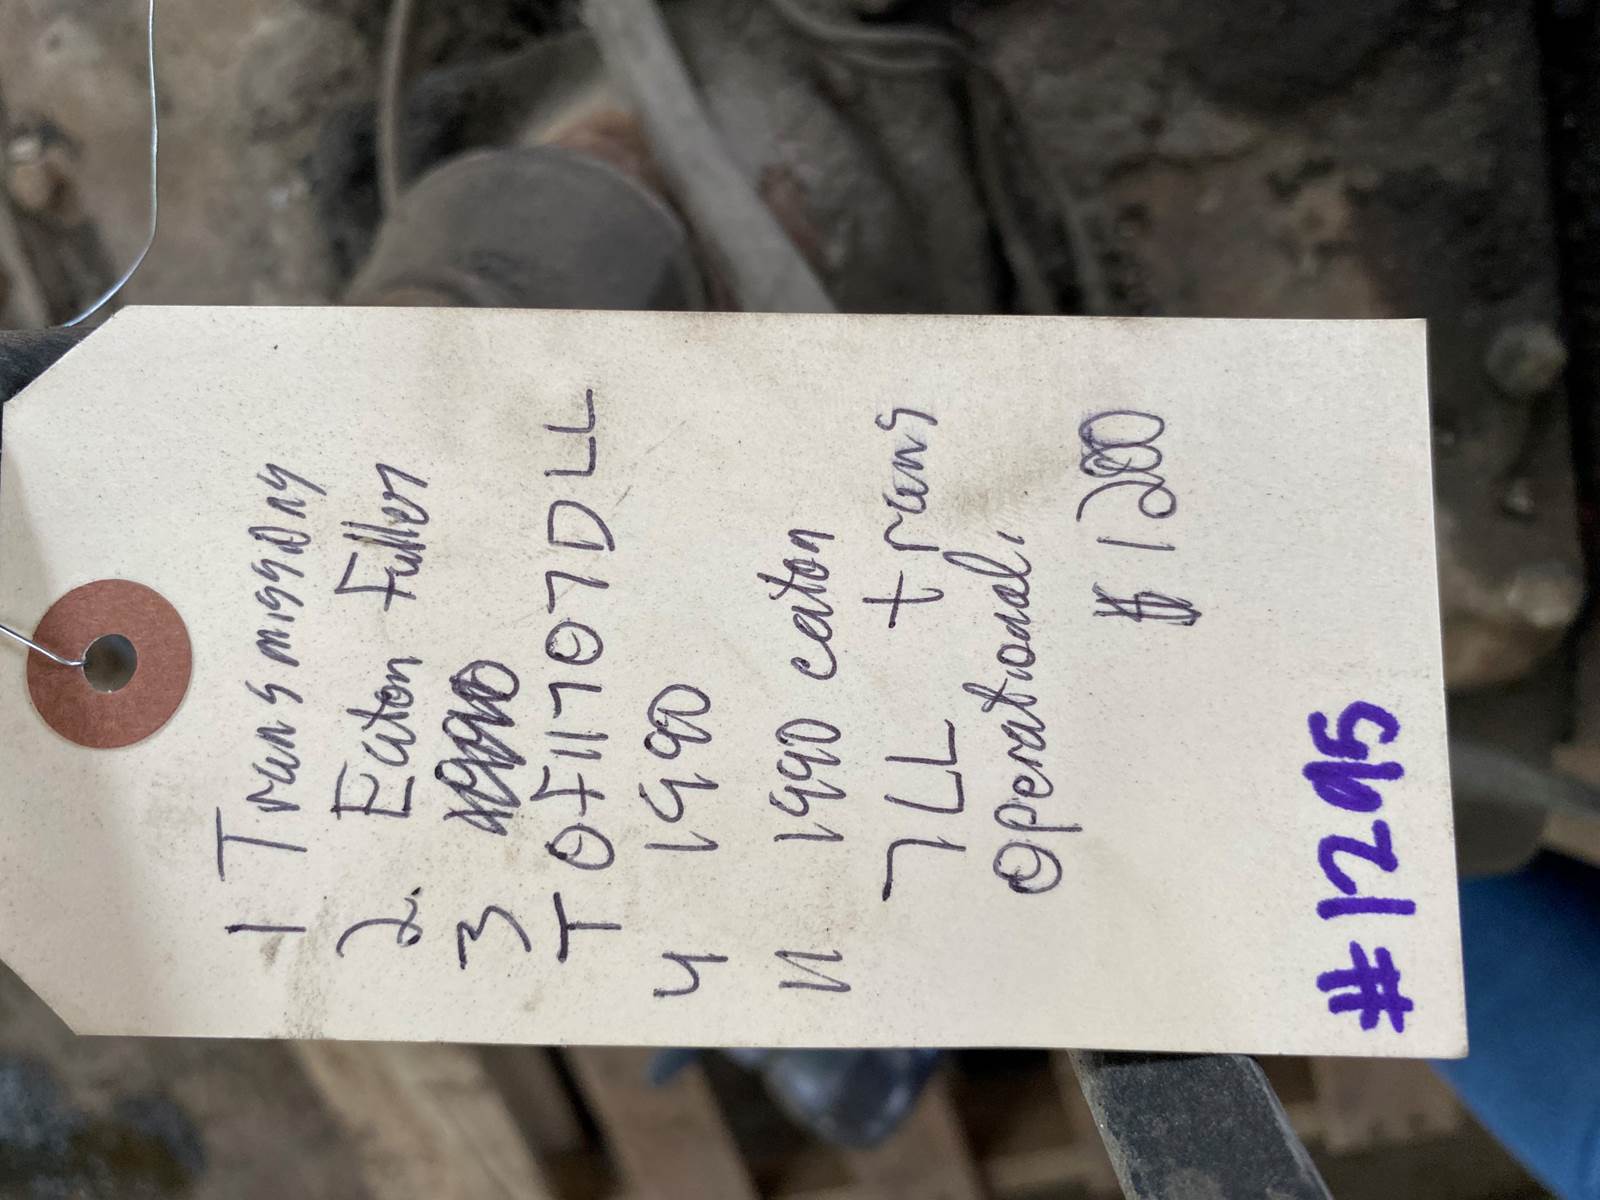 1 Transmissions
2. Eaton Fuller
3
TOF11707DLL
4 1990
11 1990 eaton
7LL trans
Operational,
$1200
#1295